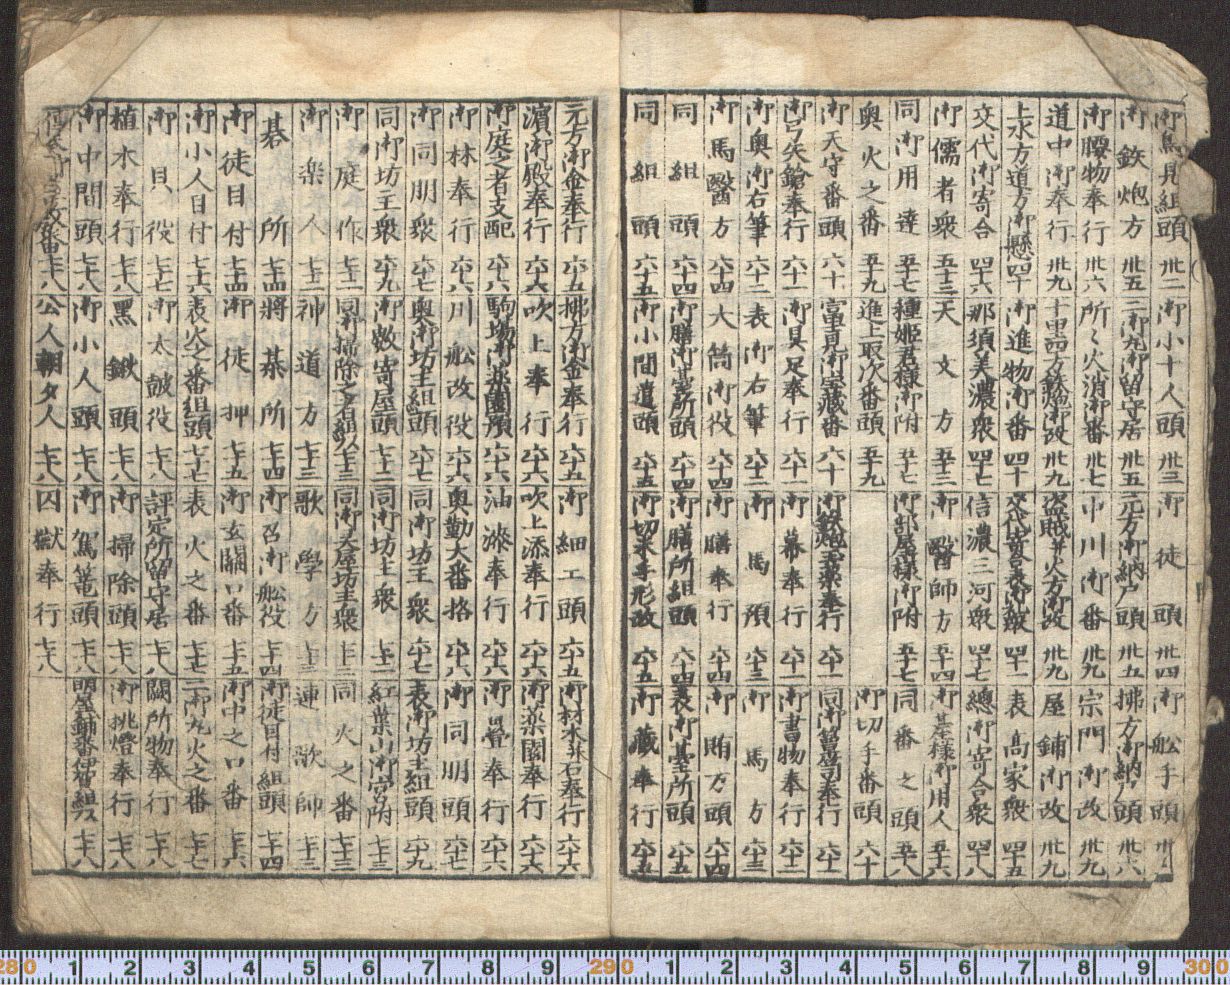 御鳥見組頭 卅二 御小十人頭 卅三 御徒頭 卅四 御舩手頭
御鉄炮方 卅五 二御丸御留守居 卅五 元方御納戸頭 卅五 拂方御納戸頭 卅六
御腰物奉行 卅六 所々火消御番 卅七 中川御番 卅九 宗門御改 卅九
道中御奉行 卅九 十里四方鉄炮御改 卅九 盗賊并火方御改 卅九 屋鋪御改 卅九
上水方道方御懸 四十 御進物御番 四十 四十一 表高家衆 四十五
交代御寄合 四十六 那須美濃衆 四十七 信濃三河衆 四十七 總御寄合衆 四十八
御儒者衆 五十三 天文方 五十三 御醫師方 五十四 御基様御用人 五十六
同御用達 五十七 種姫君様御附 五十七 御部屋様御附 五十七 同番之頭 五十八
奥火之番 五十九 進上取次番頭 五十九 御切手番頭 六十
御天守番頭 六十 富士見御宝蔵番 六十 御鉄炮玉薬奉行 六十一 同御箪笥奉行 六十一
御弓矢鎗奉行 六十一 御具足奉行 六十一 御幕奉行 六十一 御書物奉行 六十二
奥御右筆 六十二 表御右筆 六十二 御馬預 六十三 御馬方 六十三
御馬醫方 六十四 大筒御役 六十四 御膳奉行 六十四 御賄方頭 六十四
同組頭 六十四 御膳御臺所頭 六十四 御膳所組頭 六十四 表御臺所頭 六十五
同組頭 六十五 御小間遣頭 六十五 御切米手形改 六十五 御蔵奉行 六十五
元方御金奉行 六十五 拂方御金奉行 六十五 御細工頭 六十五 御材木并石奉行 六十六
濱御殿奉行 六十六 吹上奉行 六十六 吹上添奉行 六十六 御薬園奉行 六十六
御庭之者支配 六十六 駒場御薬園預 六十六 油漆奉行 六十六 御畳奉行 六十六
御林奉行 六十六 川舩改役 六十六 奥勤大番格 六十六 御同朋頭 六十七
御同朋衆 六十七 奥御坊主組頭 六十七 同御坊主衆 六十七 表御坊主組頭 六十九
同御坊主衆 六十九 御数寄屋頭 七十二 同御坊主衆 七十二 紅葉山御宮附 七十三
御庭作 七十二 同所掃除之者組頭 七十三 同御天屋坊主衆 七十三 同火之番 七十三
御楽人 七十三 神道方 七十三 歌學方 七十三 連歌師 七十三
碁所 七十四 將棊所 七十四 御召御舩役 七十四 御徒目付組頭 七十四
御徒目付 七十四 御徒押 七十五 御玄關口番 七十五 御中之口番 七十六
御小人目付 七十六 表火之番組頭 七十七 表火之番 七十七 二御丸火之番 七十七
御貝役 七十七 御太皷役 七十八 評定所留守居 七十八 闕所物奉行 七十八
植木奉行 七十八 黒鍬頭 七十八 御掃除頭 七十八 御挑燈奉行 七十八
御中間頭 七十八 御小人頭 七十八 御駕篭頭 七十八 七十八
七十八 公人朝夕人 七十八 囚獄奉行 七十八
280 1 2 3 4 5 6 7 8 9 290 1 2 3 4 5 6 7 8 9 300